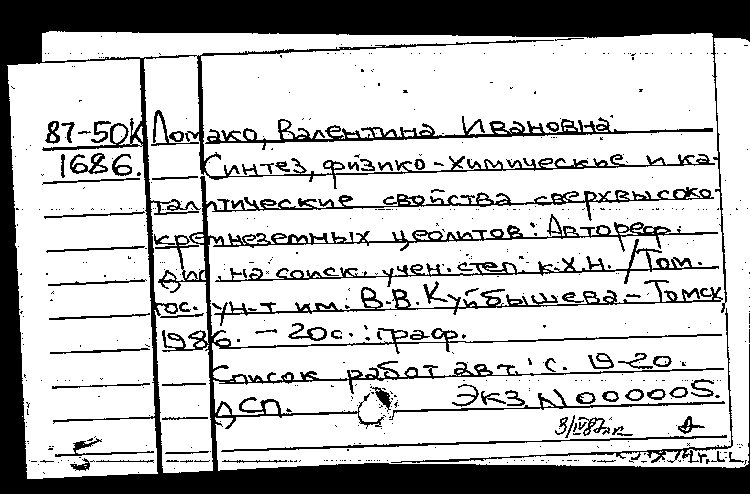 87-50К Ломако, Валентина Ивановна.
1686. Синтез, физико-химические и ка-
талитические свойства сверхвысоко-
кремнеземных цеолитов: Автореф.
дис. на соиск. учен. степ. к.х.н. / Том.
гос. ун-т им. В.В. Куйбышева.- Томск,
1986. - 20с. : граф.
Список работ авт.: с. 19-20.
ДСП. Экз. N 000005.